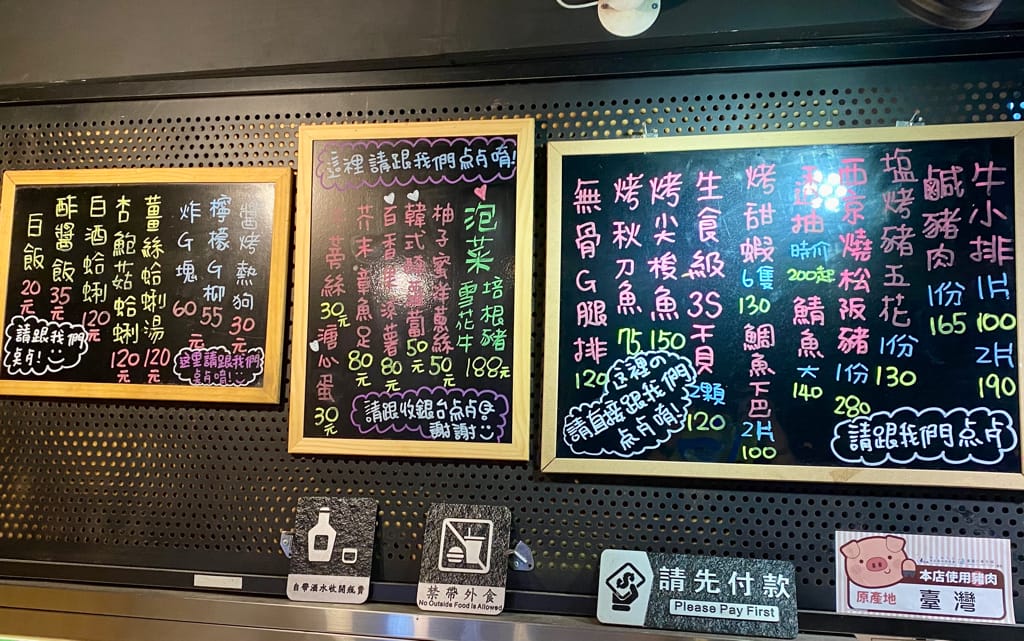 醬烤熱狗 30元
檸檬G柳 55元
炸G塊 60
薑絲蛤蜊湯 120元
杏鮑菇蛤蜊 120元
白酒蛤蜊 120元
酢醬飯 35元
白飯 20元
請跟我們点!
這里請跟我們点唷!
這裡請跟我們点唷!
泡菜
培根豬
雪花牛
188元
柚子蜜洋蔥絲 50元
韓式蘿蔔 50元
百香果涼薯 80元
芥末章魚足 80元
蒡絲 30元
溏心蛋 30元
請跟收銀台点
謝謝
牛小排 1片 100 2片 190
鹹豬肉 1份 165
塩烤豬五花 1份 130
西京燒松阪豬 1份 280
透抽 時价 200起
鯖魚 大 140
烤甜蝦 6隻 130
鯛魚下巴 2片 100
生食級3S干貝 2顆 120
烤尖梭魚 150
烤秋刀魚 75
無骨G腿排 120
這裡の
請直接跟我們
点唷!
請跟我們点
自帶酒水收開瓶費
禁帶外食
No Outside Food is Allowed
請先付款
Please Pay First
本店使用豬肉
原產地 臺灣